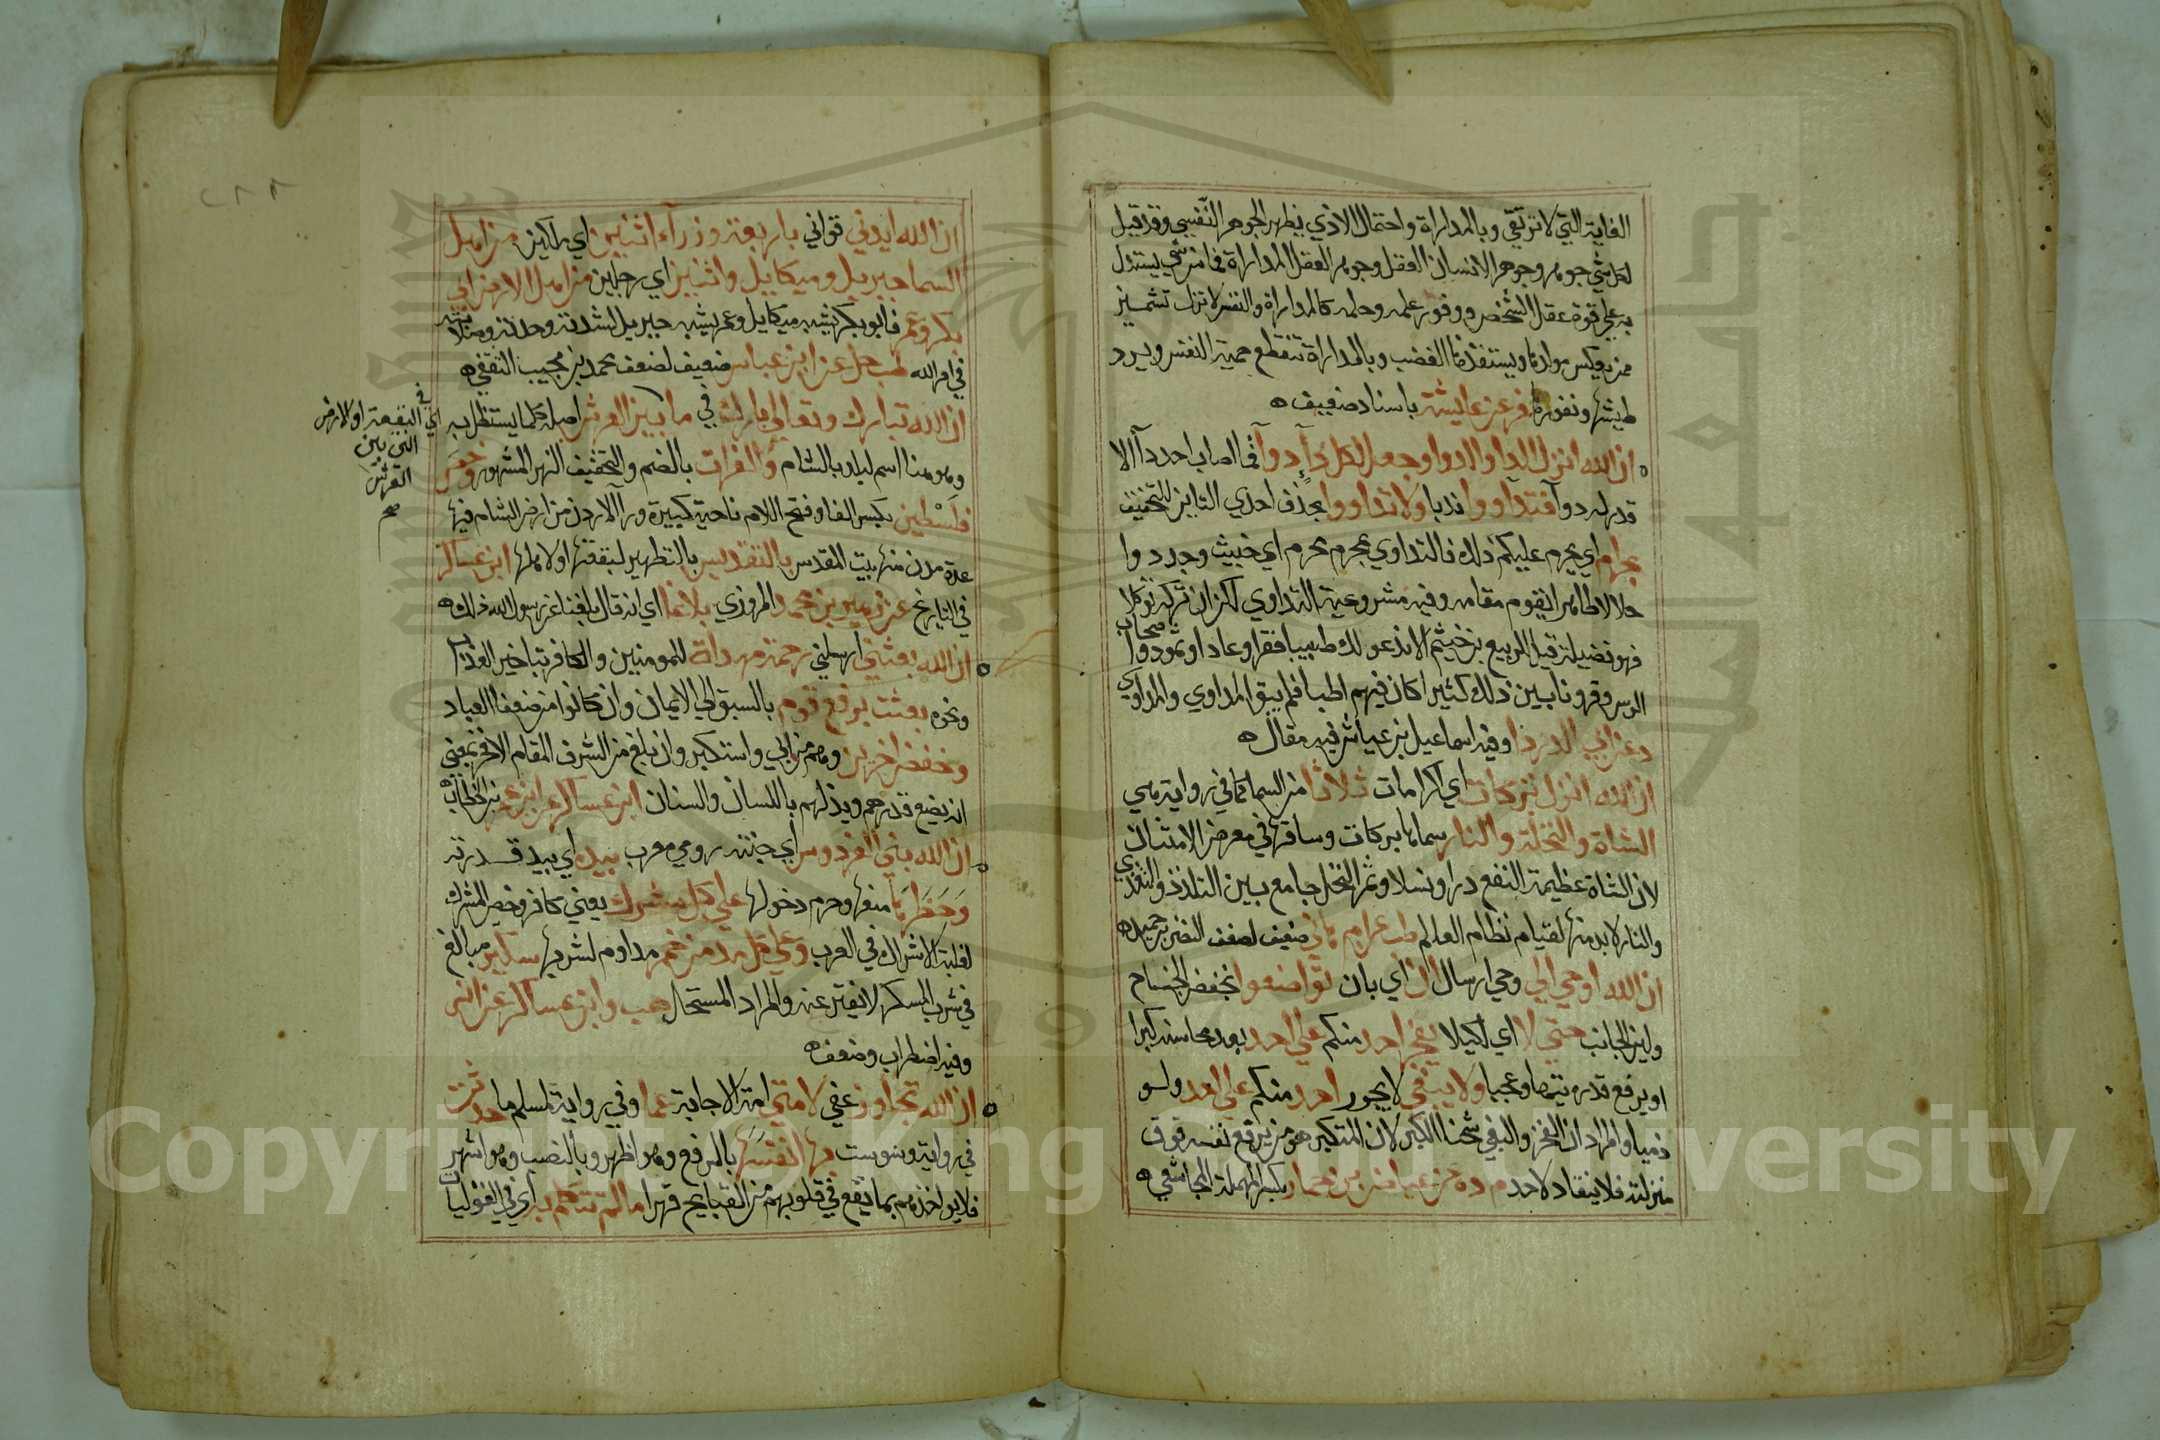 الغاية التي لا ترتقي وبالمداراة واحتمال الاذي يظهر الجوهر النفسي وقد قيل
لكل شي جوهر وجوهر الانسان العقل وجوهر العقل المداراة فما من شي يستدل
به علي قوة عقل الشخص ووفور علمه وحلمه كالمداراة والنفس لا تزال تشمئز
ممن يعكس مرادها ويستفزها الغضب وبالمداراة تنقطع حمية النفس ويرد
طيشها ونفورها فر عن عايشة باسناد ضعيف
ان الله انزل الدا والدوا وجعل لكل دآ دوآ فما اصاب احد دآ الا
قدر له دوآ فتدآووا ندبا ولا تداووا بحذف احدي التاين للتخفيف
بحرام اي يحرم عليكم ذلك فالتداوي بمحرم محرم اي حيث وجدوا
حلالا طاهرا يقوم مقامه وفيه مشروعية التداوي لكن ان تركه توكلا
فهو فضيلة قيل للربيع بن خيثم الا ندعو لك طبيبا فقرا وعادا وثمودا واصحاب
الرس وقرونا بين ذلك كثيرا كان فيهم اطبا فلم يبق المداوي والمداوي
د عن ابي الدردا وفيه اسماعيل بن عياش فيه مقال
ان الله انزل بركات اي كرامات ثلاثا من السما كما في رواية هي
الشاة والنخلة والنار سماها بركات وساقها في معرض الامتنان
لان الشاة عظيمة النفع درا ونسلا وثمر النخل جامع بين التلذذ والتغذي
والنار لابد منها لقيام نظام العالم طب عن ام هاني ضعيف لضعف النضر بن حميد
ان الله اوحي الي وحي ارسال ان اي بان تواضعوا بخفض الجناح
ولين الجانب حتي لا اي لكيلا يفخر احد منكم علي احد بعد محاسنه كبرا
او يرفع قدره تيها وعجبا ولا يبغي لا يجور احد منكم علي احد ولو
ذميا والمراد ان الفخر والبغي شحنا الكبر لان المتكبر هو من يرفع نفسه فوق
منزلته فلا ينقاد لاحد م د ه عن عياض بن حمار بكسر المهملة المجاشعي
ان الله ايدني قواني باربعة وزرآء اثنين اي ملكين من اهل
السما جبريل وميكاييل واثنين اي رجلين من اهل الارض ابي
بكر وعمر فابو بكر يشبه ميكاييل وعمر يشبه جبريل لشدته وحدته وصلابته
في امر الله طب حل عن ابن عباس ضعيف لضعف محمد بن مجيب الثقفي
ان الله تبارك وتعالي بارك في ما بين العرش اصله كلما يستظل به
وهو هنا اسم لبلد بالشام والفرات بالضم والتخفيف النهر المشهور وخص
فلسطين بكسر الفا وفتح اللام ناحية كبيرة ورآ الاردن من ارض الشام فيها
عدة مدن منها بيت المقدس بالتقديس بالتطهير لبقعتها او لاهلها ابن عساكر
في التاريخ عن زهير بن محمد المروزي بلاغا اي انه قال بلغنا عن رسول الله ذلك
ان الله بعثني ارسلني رحمة مهداة للمومنين والكافر بتاخير العذاب
ونحوه بعثت برفع قوم بالسبق الي الايمان وان كانوا من ضعفا العباد
وخفض اخرين وهم من ابي واستكبر وان بلغ من الشرف المقام الافخر بمعني
انه يضع قدرهم ويذلهم باللسان والسنان ابن عساكر عن ابن عمر بن الخطاب
ان الله بني الفردوس اي جنته رومي معرب بيده اي بيد قدرته
وحظرها منعها وحرم دخولها علي كل مشرك يعني كافر وخص المشرك
لغلبة الاشراك في العرب وعلي كل مدمن خمر مداوم لشربها سكير مبالغ
في شرب المسكر لا يفتر عنه والمراد المستحل هب وابن عساكر عن انس
وفيه اضطراب وضعف
ان الله تجاوز عفي لامتي امة الاجابة عما وفي رواية لمسلم ما حدثت
في رواية وسوست بها انفسها بالرفع وهو اظهر وبالنصب وهو اشهر
فلا يواخذهم بما يقع في قلوبهم من القبايح قهرا ما لم تتكلم به اي في القوليات
اي في البقعة او الارض
التي بين
العرش
صح